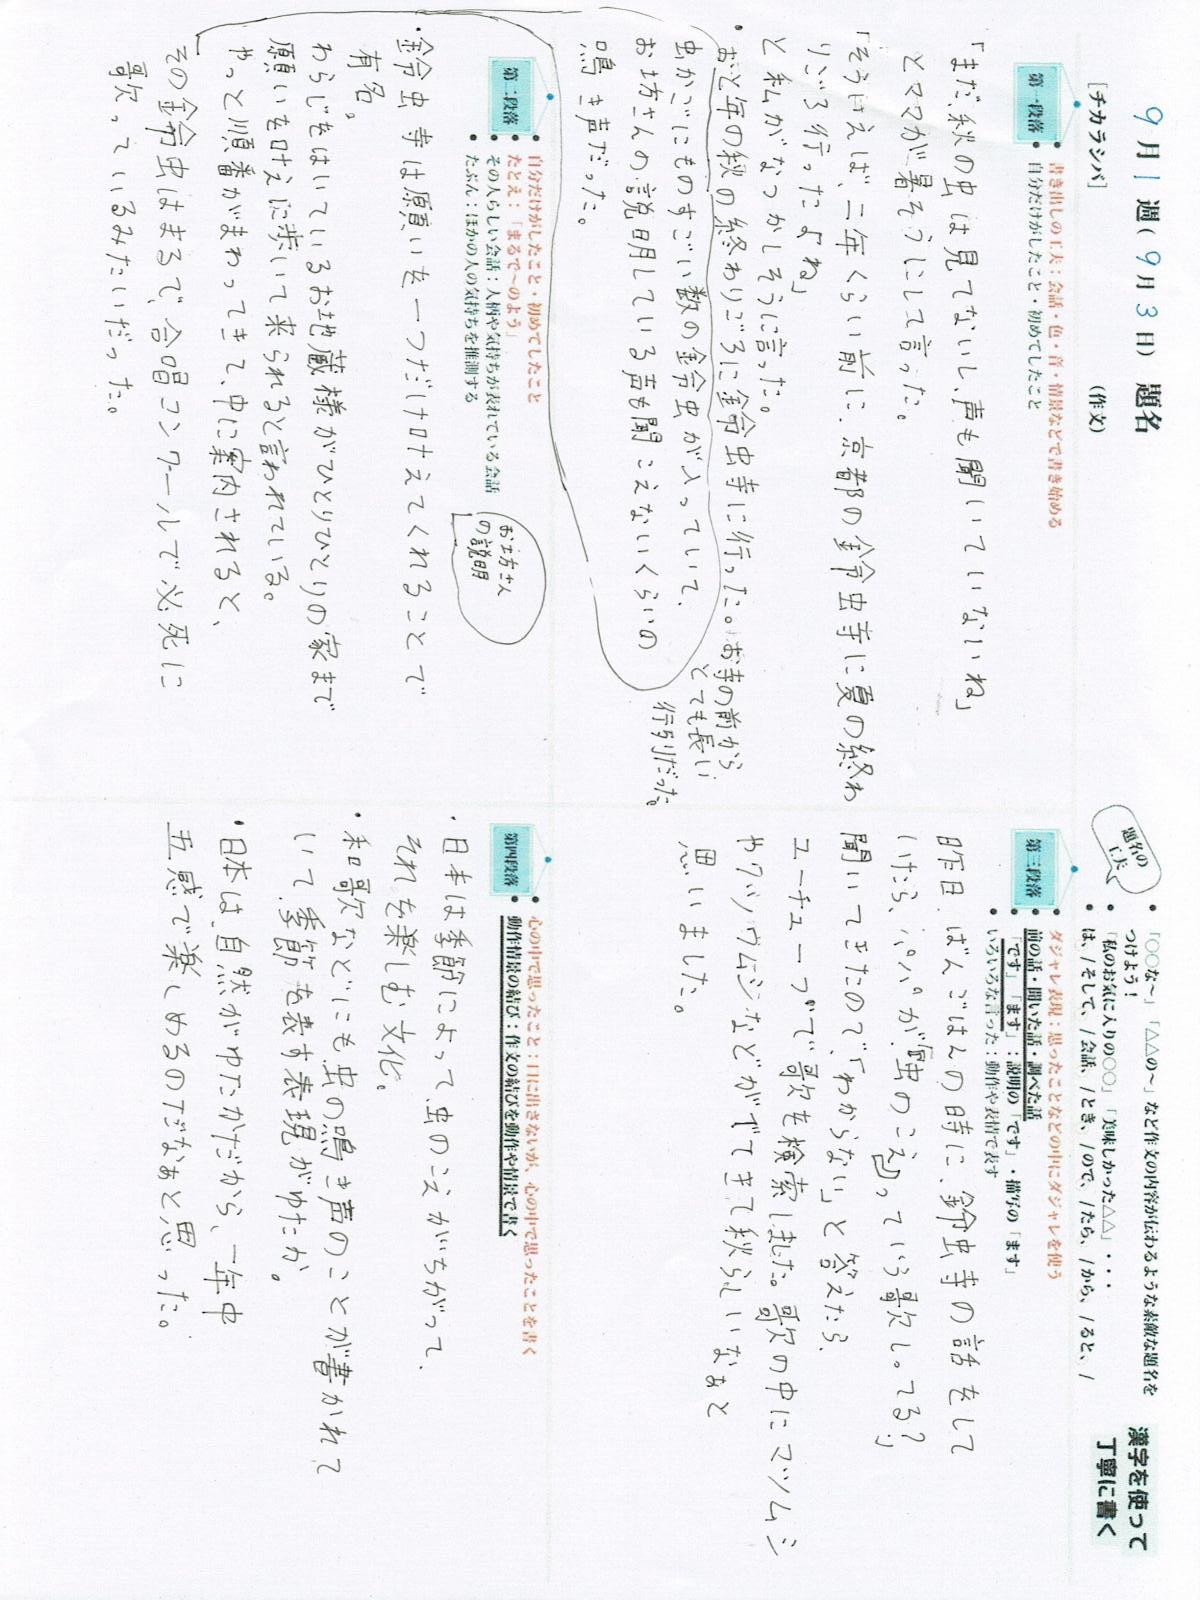 9月1週（9月3日）　題名
［チカラシバ］（作文）
第一段落
・書き出しの工夫：会話・色・音・情景などで書き始める
・自分だけがしたこと・初めてしたこと
「まだ秋の虫は見てないし、声も聞いていないね」
とママが暑そうにして言った。
「そういえば、二年くらい前に、京都の鈴虫寺に夏の終わ
りごろ行ったよね」
と私がなつかしそうに言った。
・おと年の秋の終わりごろに鈴虫寺に行った。お寺の前から
とても長い
行列だった。
虫かごにものすごい数の鈴虫が入っていて、
お坊さんの説明している声も聞こえないくらいの
鳴き声だった。
第二段落
・自分だけがしたこと・初めてしたこと
たとえ：「まるで〜のよう」
・その人らしい会話：人柄や気持ちが表れている会話
・たぶん：ほかの人の気持ちを推測する
お坊さん
の説明
・鈴虫寺は願いを一つだけ叶えてくれることで
有名。
わらじをはいているお地蔵様がひとりひとりの家まで
願いを叶えに歩いて来られると言われている。
やっと順番がまわってきて、中に案内されると、
その鈴虫はまるで、合唱コンクールで必死に
歌っているみたいだった。
題名の
工夫
・「○○な〜」「△△の〜」など作文の内容が伝わるような素敵な題名を
つけよう！
・「私のお気に入りの○○」「美味しかった△△」・・・
・は、/そして、/会話、/とき、/ので、/たら、/から、/ると、/
漢字を使って
丁寧に書く
第三段落
・ダジャレ表現：思ったことなどの中にダジャレを使う
・前の話・聞いた話・調べた話
・「です」「ます」：説明の「です」・描写の「ます」
・いろいろな言った：動作や表情で表す
昨日、ばんごはんの時に、鈴虫寺の話をして
いたら、パパが「『虫のこえ』っていう歌しってる？」
聞いてきたので、「わからない」と答えたら、
ユーチューブで歌を検索しました。歌の中にマツムシ
やクツワムシなどがでてきて秋らしいなぁと
思いました。
第四段落
・心の中で思ったこと：口に出さないが、心の中で思ったことを書く
・動作情景の結び：作文の結びを動作や情景で書く
・日本は季節によって、虫のこえがちがって、
それを楽しむ文化。
・和歌などにも虫の鳴き声のことが書かれて
いて、季節を表す表現がゆたか。
・日本は、自然がゆたかだから、一年中
五感で楽しめるのだなぁと思った。